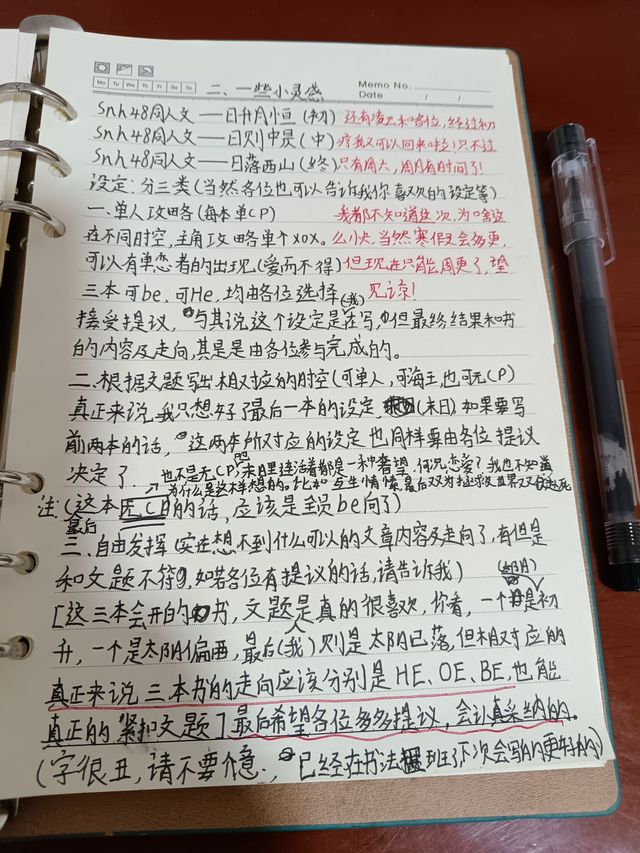 Mo Tu We Th Fr Sa Su
Memo No.
Date / /
二、一些小灵感
Snh48同人文——日升月恒(初) 还有凌云和各位,经过初
Snh48同人文——日则中昃(中) 疼我又可以回来啦!只不过
Snh48同人文——日落西山(终) 只有周六,周日有时间了!
设定:分三类(当然各位也可以告诉我你喜欢的设定等)
一.单人攻略(每本单CP) 我都不知道这次,为啥这
在不同时空,主角攻略单个xox。么小快,当然寒假会多更,
可以有单恋者的出现(爱而不得)但现在只能周更了,望
三本可be,可He,均由各位选择(我) 见谅!
接受提议,与其说这个设定是在写,但最终结果和书
的内容及走向,其是是由各位参与完成的。
二.根据文题写出相对应的时空(可单人,可海王,也可无CP)
真正来说,我只想好了最后一本的设定(末日),如果要写
前两本的话,这两本所对应的设定也同样要由各位提议
决定了
也不是无CP,末日里连活着都是一种奢望,何况恋爱?我也不知道
为什么是这样想的。比如互生情愫,最后双方为拯救世界双双赴死
注:(这本无CP的的话,应该是全员be向了)
最后
三、自由发挥(实在想不到什么可以的文章内容及走向了,有但是
和文题不符的,如若各位有提议的话,请告诉我)
[这三本会开的书,文题是真的很喜欢,你看,一个是初
升,一个是太阳偏西,最后(我)则是太阳已落,但相对应的
真正来说,三本书的走向应该分别是HE、OE、BE,也能
真正的紧扣文题了最后希望各位多多提议,会认真采纳的。
(字很丑,请不要介意,已经在书法班了下次会写的更好的)